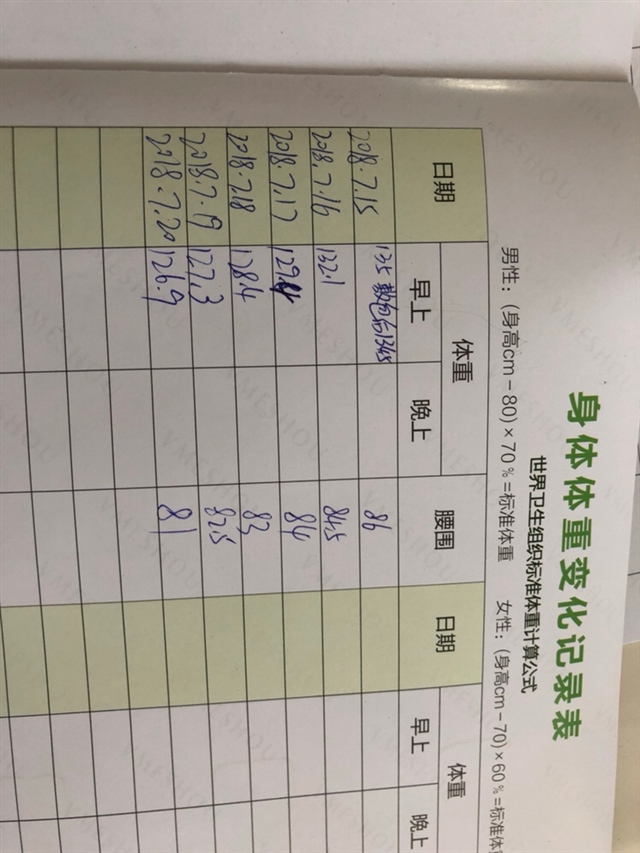 身体体重变化记录表
世界卫生组织标准体重计算公式
男性：(身高cm－80)×70％=标准体重 女性：(身高cm－70)×60％=标准体
日期 体重 腰围 日期 体重
早上 晚上 早上 晚上
2018.7.15 135 敷包后134.5 86
2018.7.16 132.1 84.5
2018.7.17 84
2018.7.18 128.4 83
2018.7.19 127.3 82.5
2018.7.20 126.9 81